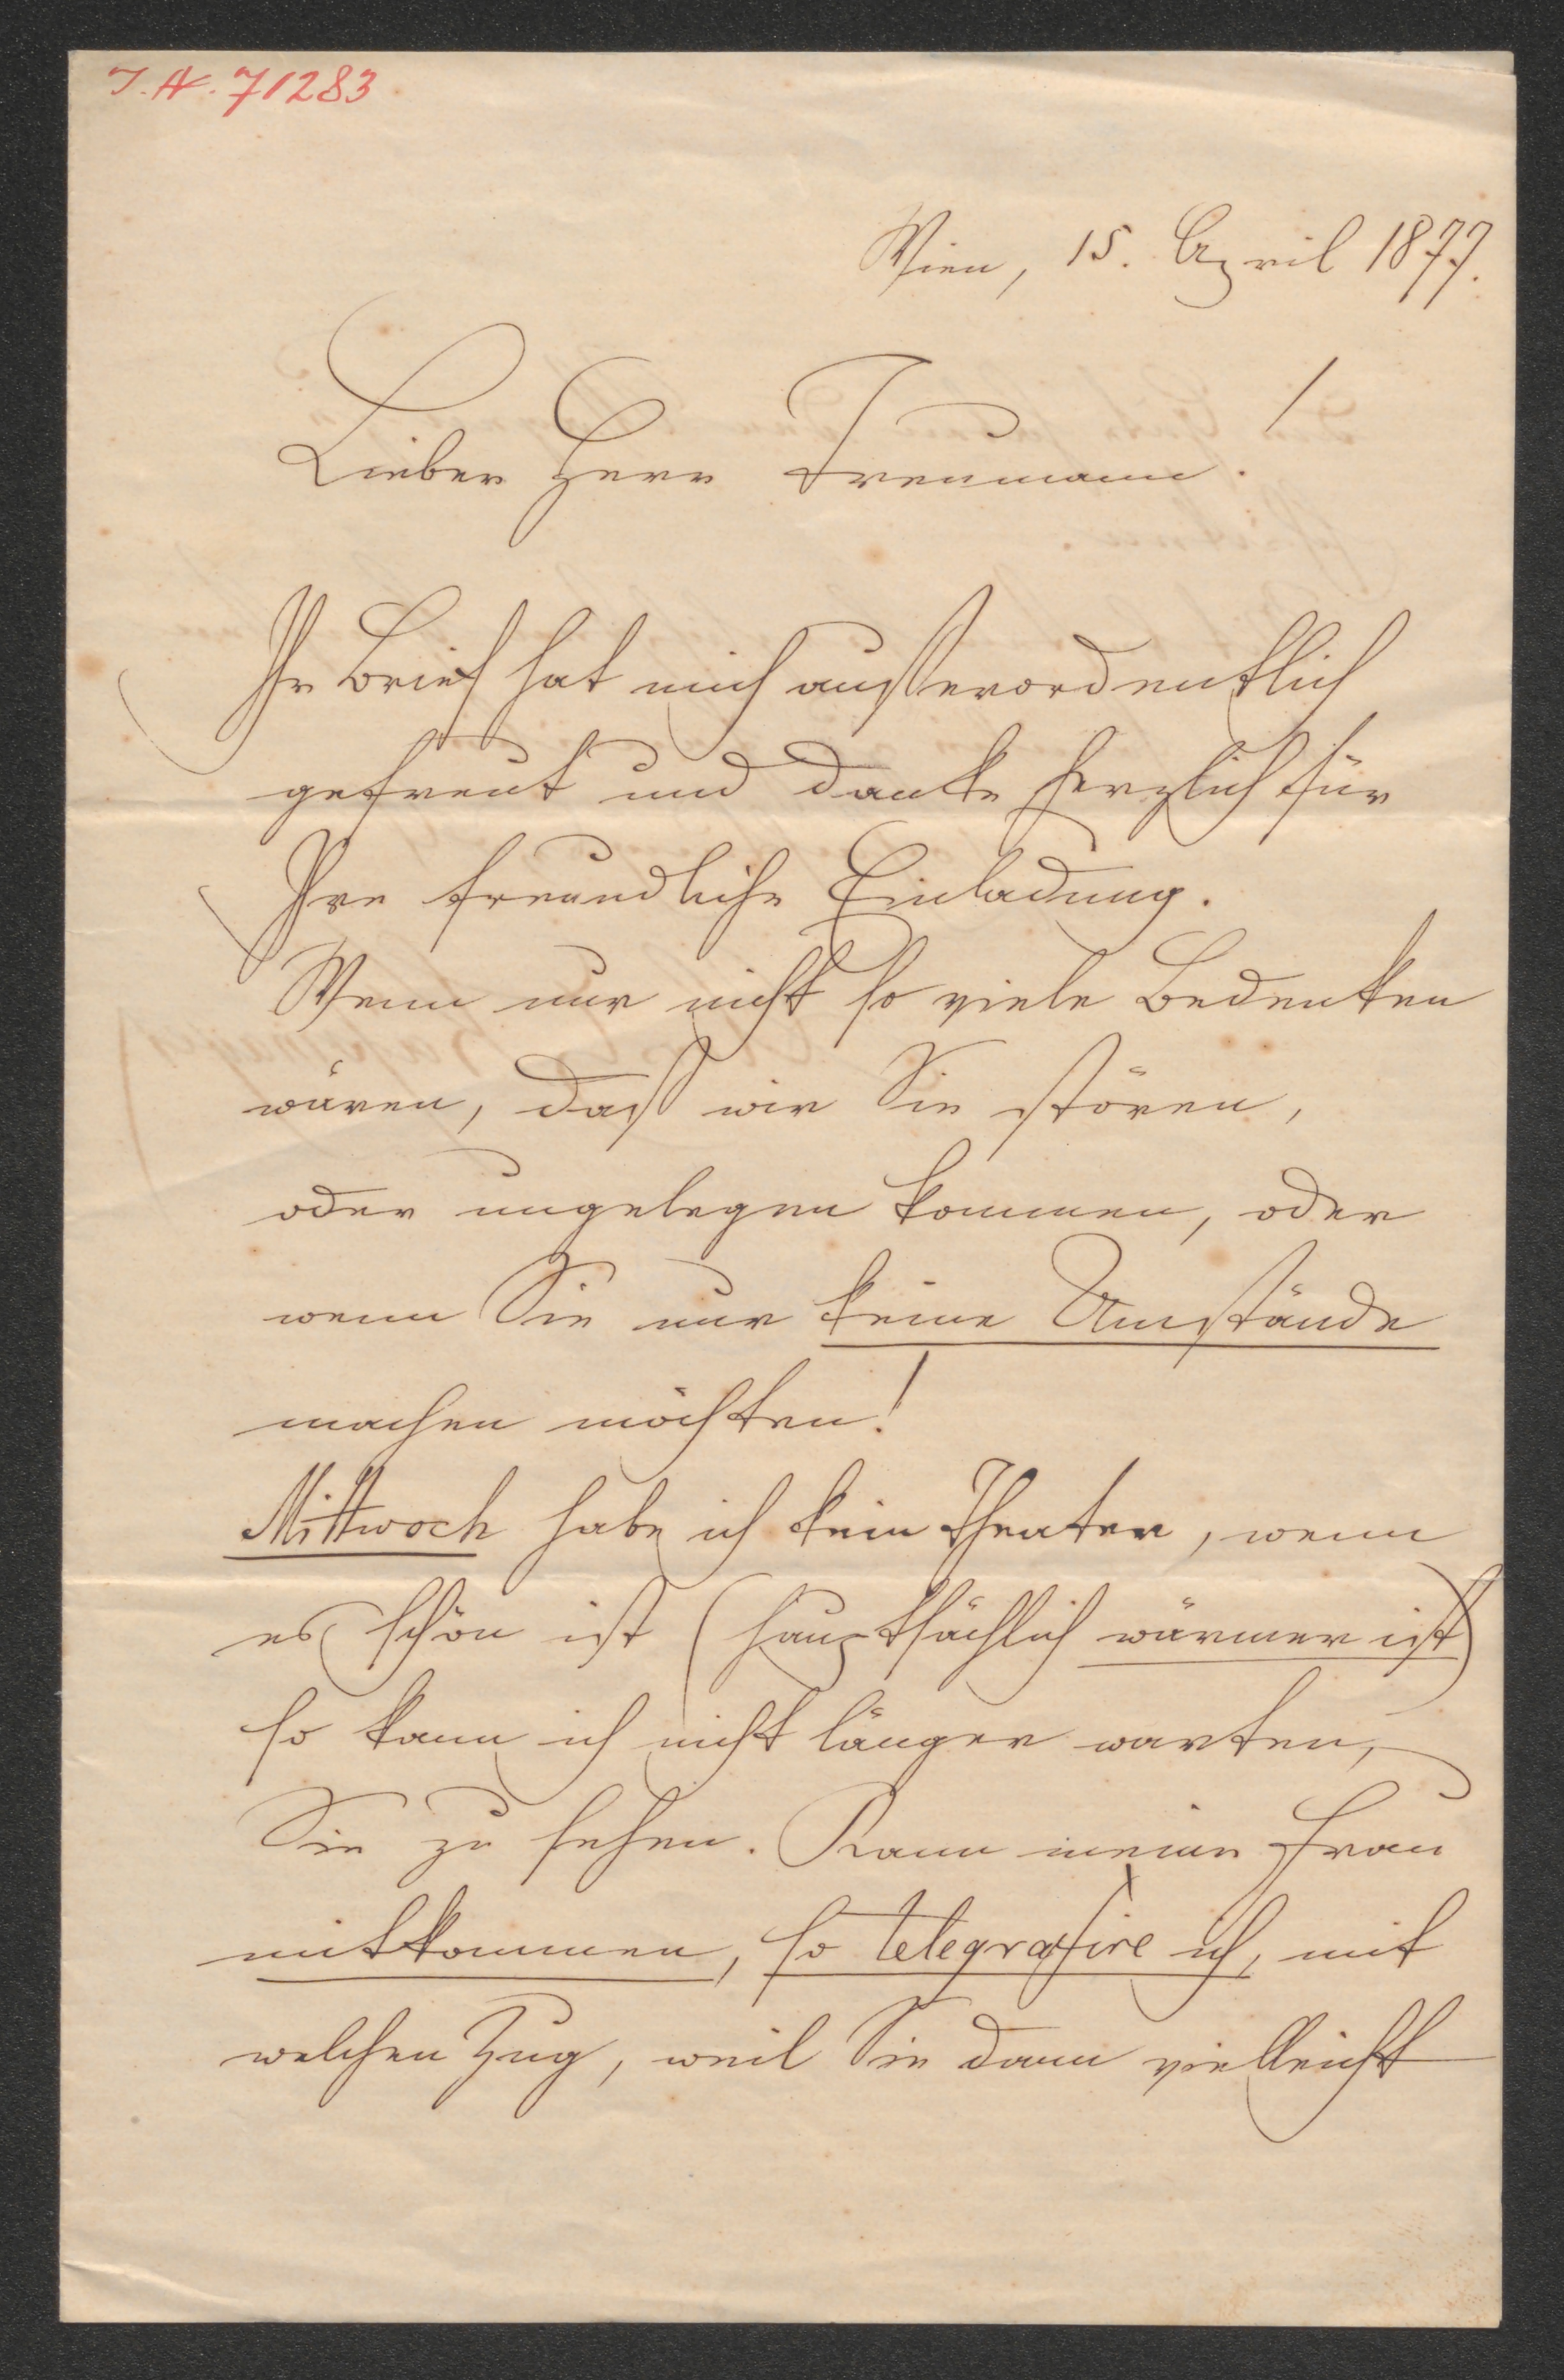 I.N. 71283
Wien, 15. April 1877.
Lieber Herr Treumann!
Ihr Brief hat mich außerordentlich
gefreut und danke herzlich für
Ihre freundliche Einladung.
Wenn nur nicht so viele Bedenken
wären, daß wir Sie stören,
oder ungelegen kommen, oder
wenn Sie nur keine Umstände
machen möchten!
Mittwoch habe ich kein Theater, wenn
es schön ist (hauptsächlich wärmer ist)
so kann ich nicht länger warten,
Sie zu sehen. Kann meine Frau
mitkommen, so telegrafire ich, mit
welchen Zug, weil Sie dann vielleicht